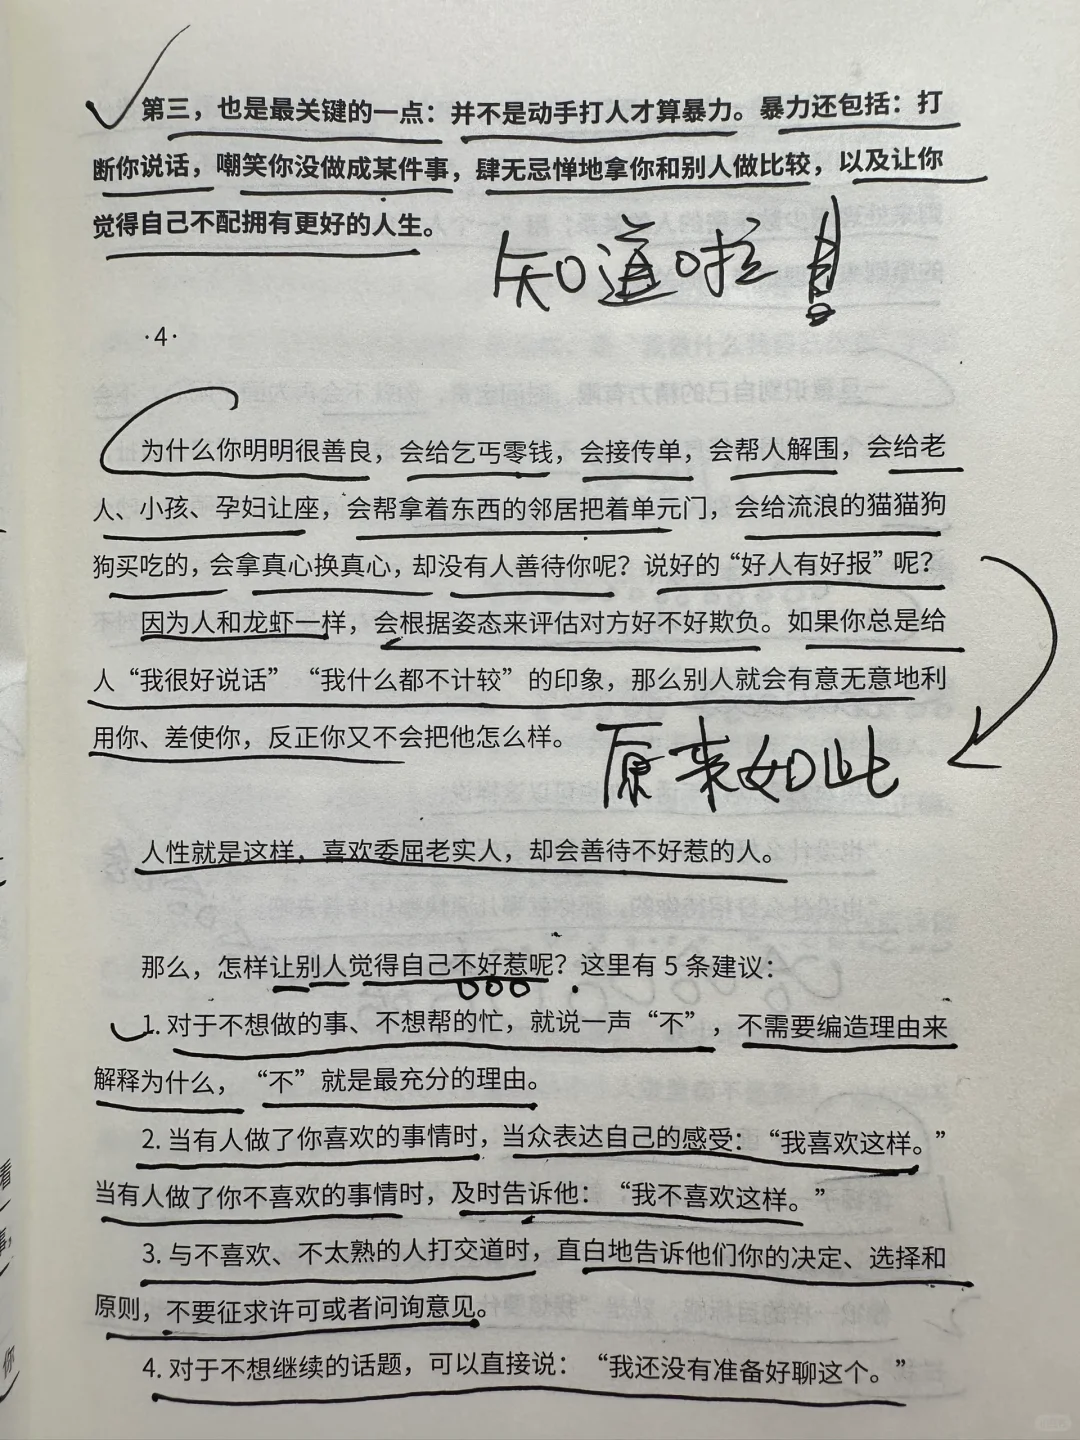 第三，也是最关键的一点：并不是动手打人才算暴力。暴力还包括：打
断你说话，嘲笑你没做成某件事，肆无忌惮地拿你和别人做比较，以及让你
觉得自己不配拥有更好的人生。
知道啦！
·4·
为什么你明明很善良，会给乞丐零钱，会接传单，会帮人解围，会给老
人、小孩、孕妇让座，会帮拿着东西的邻居把着单元门，会给流浪的猫猫狗
狗买吃的，会拿真心换真心，却没有人善待你呢？说好的“好人有好报”呢？
因为人和龙虾一样，会根据姿态来评估对方好不好欺负。如果你总是给
人“我很好说话”“我什么都不计较”的印象，那么别人就会有意无意地利
用你、差使你，反正你又不会把他怎么样。
原来如此
人性就是这样，喜欢委屈老实人，却会善待不好惹的人。
那么，怎样让别人觉得自己不好惹呢？这里有 5 条建议：
1. 对于不想做的事、不想帮的忙，就说一声“不”，不需要编造理由来
解释为什么，“不”就是最充分的理由。
2. 当有人做了你喜欢的事情时，当众表达自己的感受：“我喜欢这样。”
当有人做了你不喜欢的事情时，及时告诉他：“我不喜欢这样。”
3. 与不喜欢、不太熟的人打交道时，直白地告诉他们你的决定、选择和
原则，不要征求许可或者问询意见。
4. 对于不想继续的话题，可以直接说：“我还没有准备好聊这个。”
看
事，
你